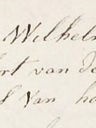 Wilhel
rt van de
van ho